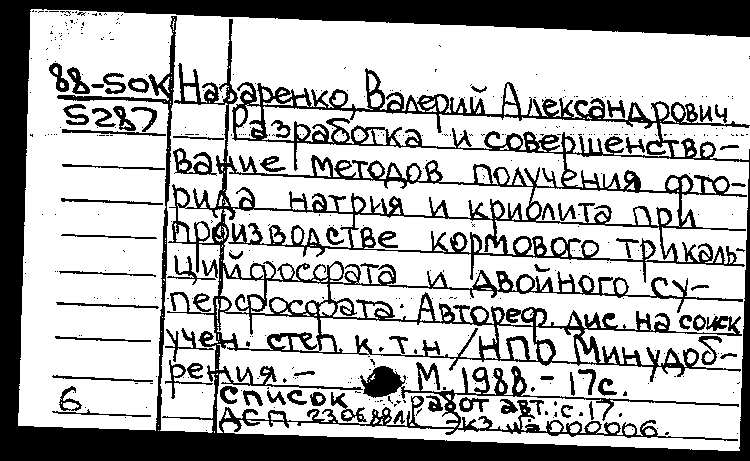 88-50К Назаренко, Валерий Александрович.
5287 Разработка и совершенство-
вание методов получения фто-
рида натрия и криолита при
производстве кормового трикаль-
цийфосфата и двойного су-
перфосфата: Автореф. дис. на соиск
учен. степ. к.т.н. / НПО Минудоб-
рения. - М. 1988. - 17с.
6. список работ авт.: с.17.
ДСП. экз. №000006.